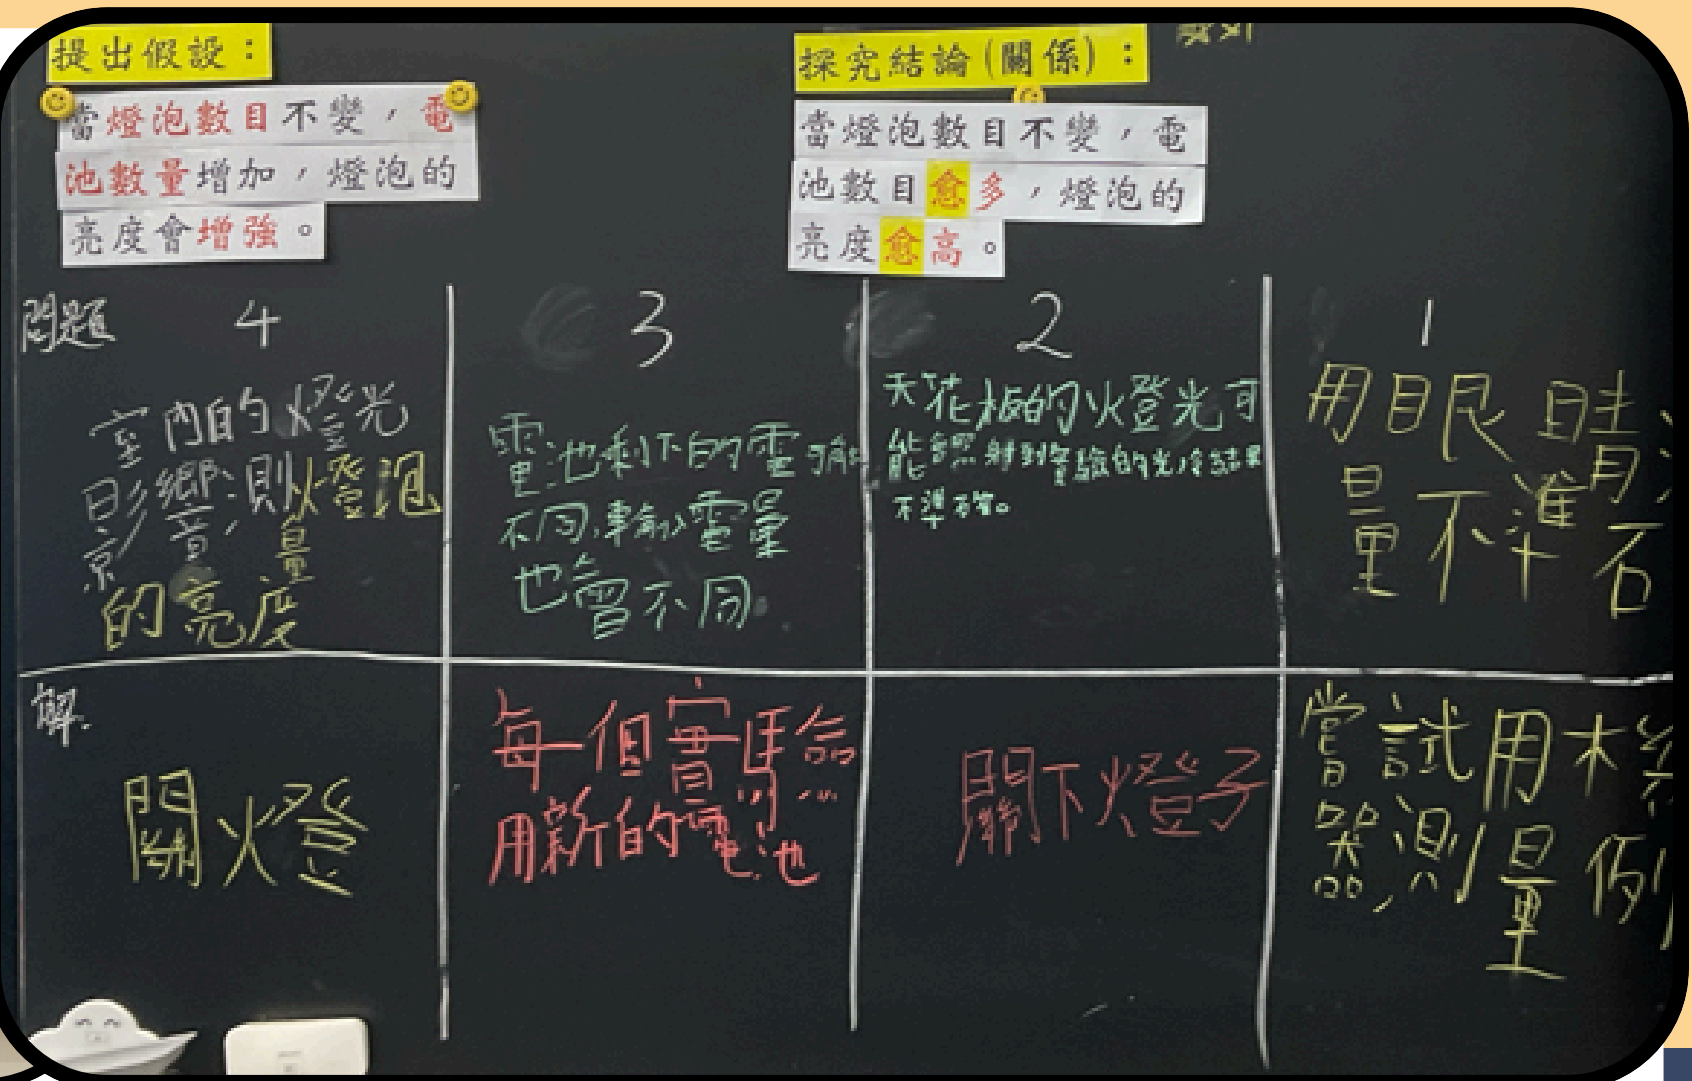 提出假設：
當燈泡數目不變，電
池數量增加，燈泡的
亮度會增強。
探究結論(關係)：
當燈泡數目不變，電
池數目愈多，燈泡的
亮度愈高。
問題
4
室內的燈光
影響，測量燈泡
的亮度
3
電池剩下的電
不同，輸入電量
也會不同。
2
天花板的燈光可
能會照射到實驗的光
不準確。
1
用眼睛
量不準
解.
關燈
每一個實驗
用新的電池
關下燈子
嘗試用
器，測量